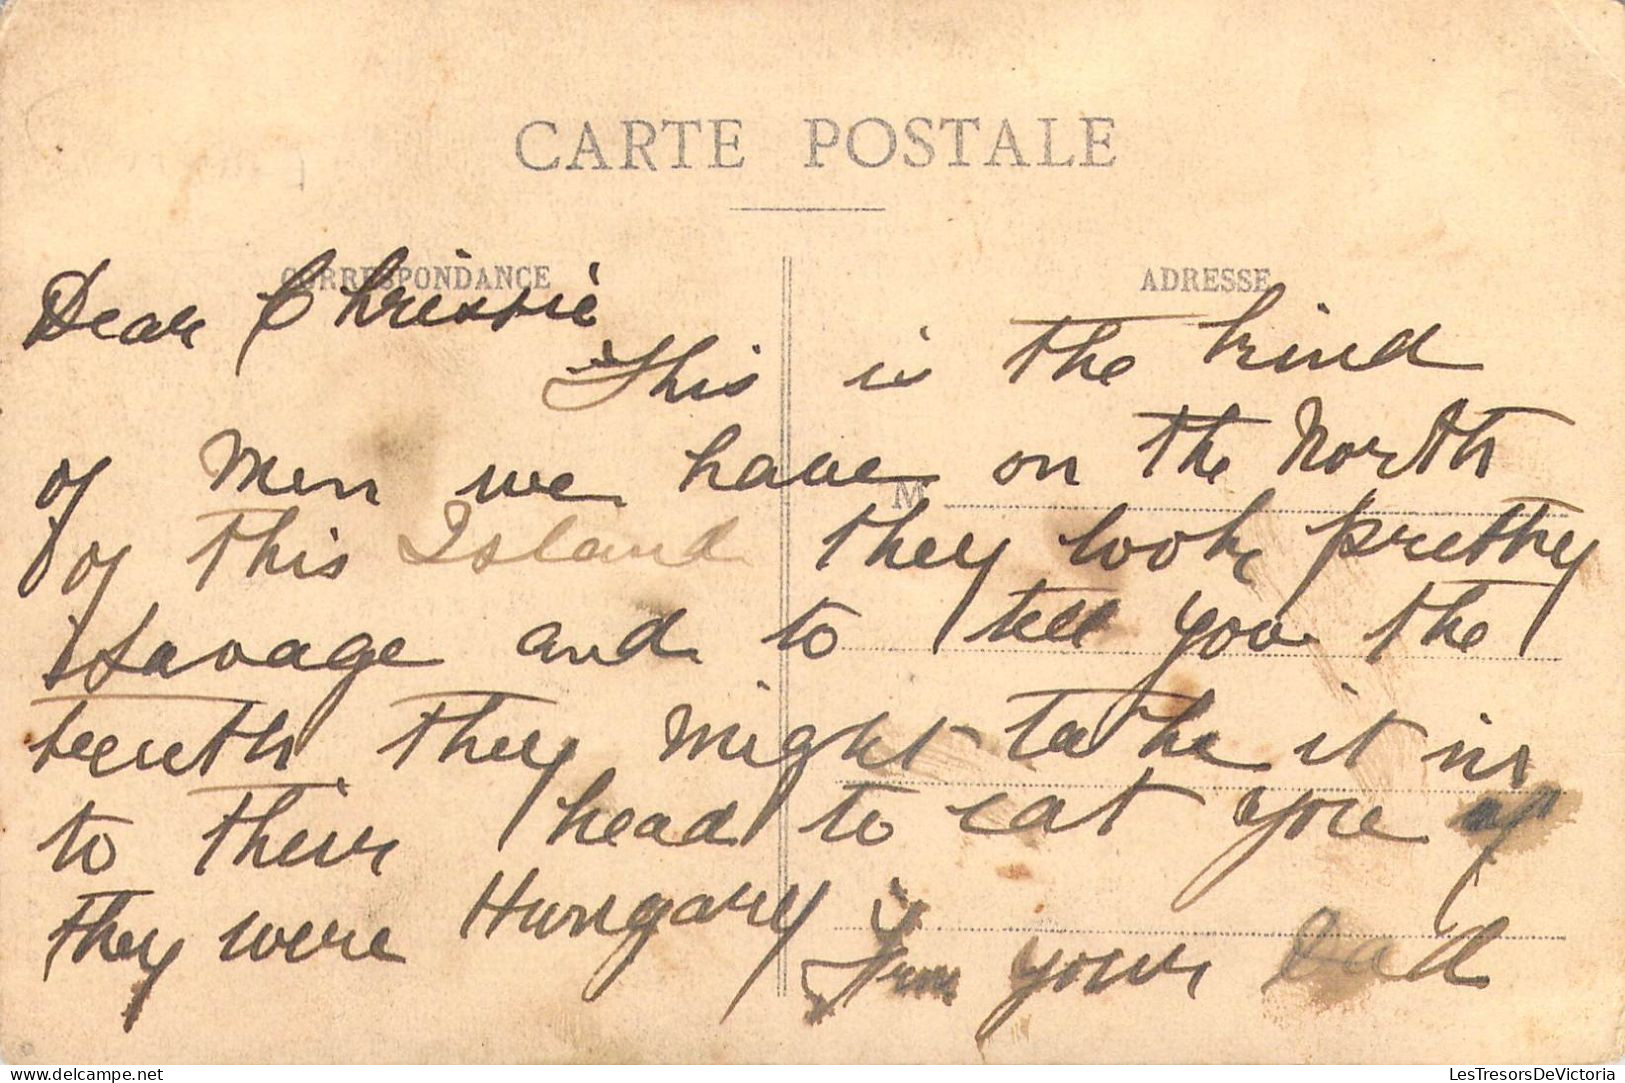 CARTE POSTALE
CORRESPONDANCE
ADRESSE
M
Dear Christie
This is the kind
of Men we have on the North
of this Island they look pretty
Savage and to tell you the
treuth. They Might take it in
to their head to eat you if
they were Hungary from your Dad
LesTresorsDeVictoria
delcampe.net